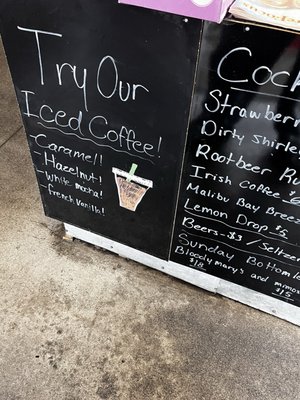 Try Our
Iced Coffee!
- Caramel!
- Hazelnut!
- White mocha!
- French Vanilla!
Cock
Strawberry
Dirty Shirle
Rootbeer
Irish coffee
Malibu Bay Bree
Lemon Drop $
Beers - $3 / Seltzer
Sunday Bottomle
Bloody mary's and mimos
$18
$15